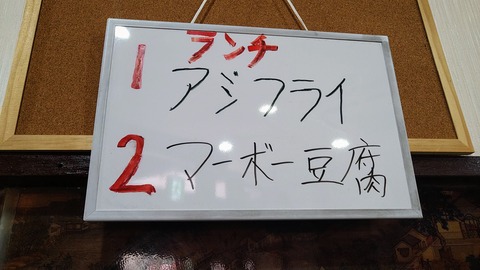 ランチ
1 アジフライ
2 マーボー豆腐